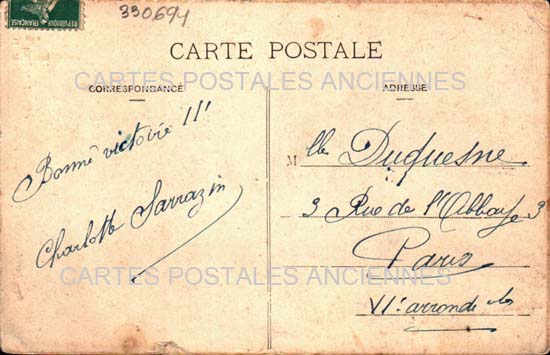 330694
CARTE POSTALE
CARTES POSTALES ANCIENNES
CORRESPONDANCE
ADRESSE
Bonne victoire !!!
Charlotte Sarrazin
Mlle Duquesne
3 Rue de l'Abbaye 3
Paris
VIe arrond
CARTES POSTALES ANCIENNES